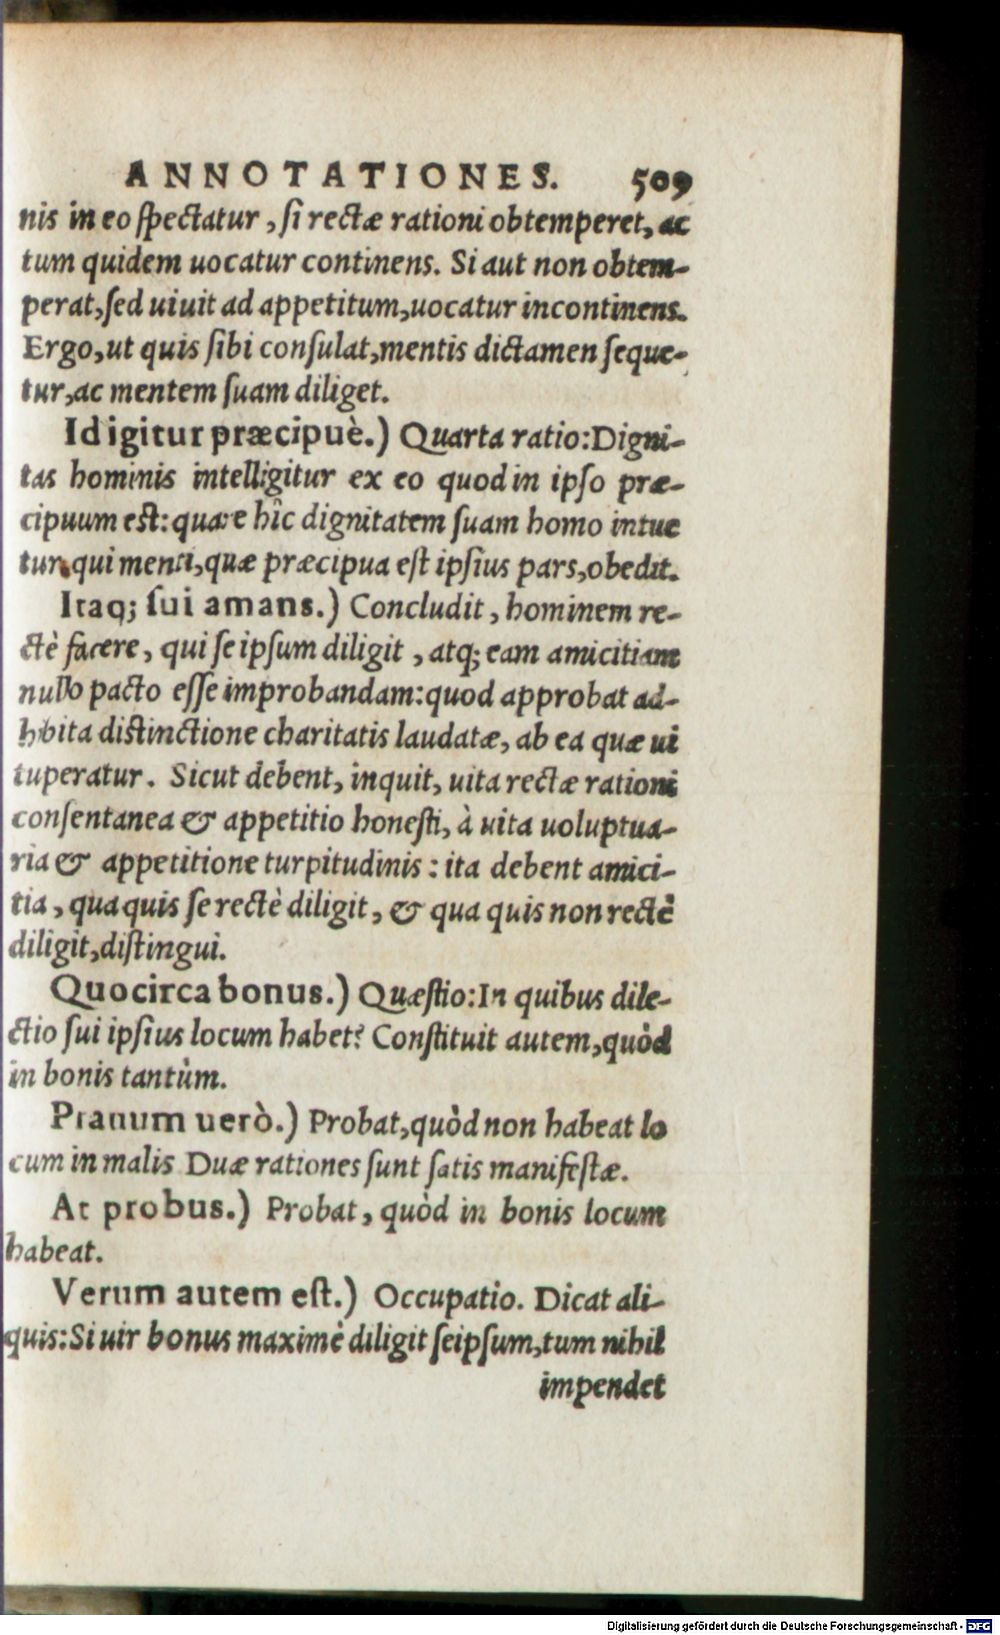 ANNOTATIONES. 509
nis in eo spectatur, si rectæ rationi obtemperet, ac
tum quidem uocatur continens. Si aut non obtem-
perat, sed uiuit ad appetitum, uocatur incontinens.
Ergo, ut quis sibi consulat, mentis dictamen seque-
tur, ac mentem suam diliget.
Id igitur præcipuè.) Quarta ratio: Digni-
tas hominis intelligitur ex eo quod in ipso præ-
cipuum est: quare hîc dignitatem suam homo intue
tur, qui menti, quæ præcipua est ipsius pars, obedit.
Itaq; sui amans.) Concludit, hominem re-
ctè facere, qui se ipsum diligit, atq; eam amicitiam
nullo pacto esse improbandam: quod approbat ad-
hibita distinctione charitatis laudatæ, ab ea quæ ui
tuperatur. Sicut debent, inquit, uita rectæ rationi
consentanea & appetitio honesti, à uita uoluptua-
ria & appetitione turpitudinis: ita debent amici-
tia, qua quis se rectè diligit, & qua quis non rectè
diligit, distingui.
Quocirca bonus.) Quæstio: In quibus dile-
ctio sui ipsius locum habet? Constituit autem, quòd
in bonis tantùm.
Prauum uerò.) Probat, quòd non habeat lo
cum in malis Duæ rationes sunt satis manifestæ.
At probus.) Probat, quòd in bonis locum
habeat.
Verum autem est.) Occupatio. Dicat ali-
quis: Si uir bonus maximè diligit seipsum, tum nihil
impendet
Digitalisierung gefördert durch die Deutsche Forschungsgemeinschaft - DFG